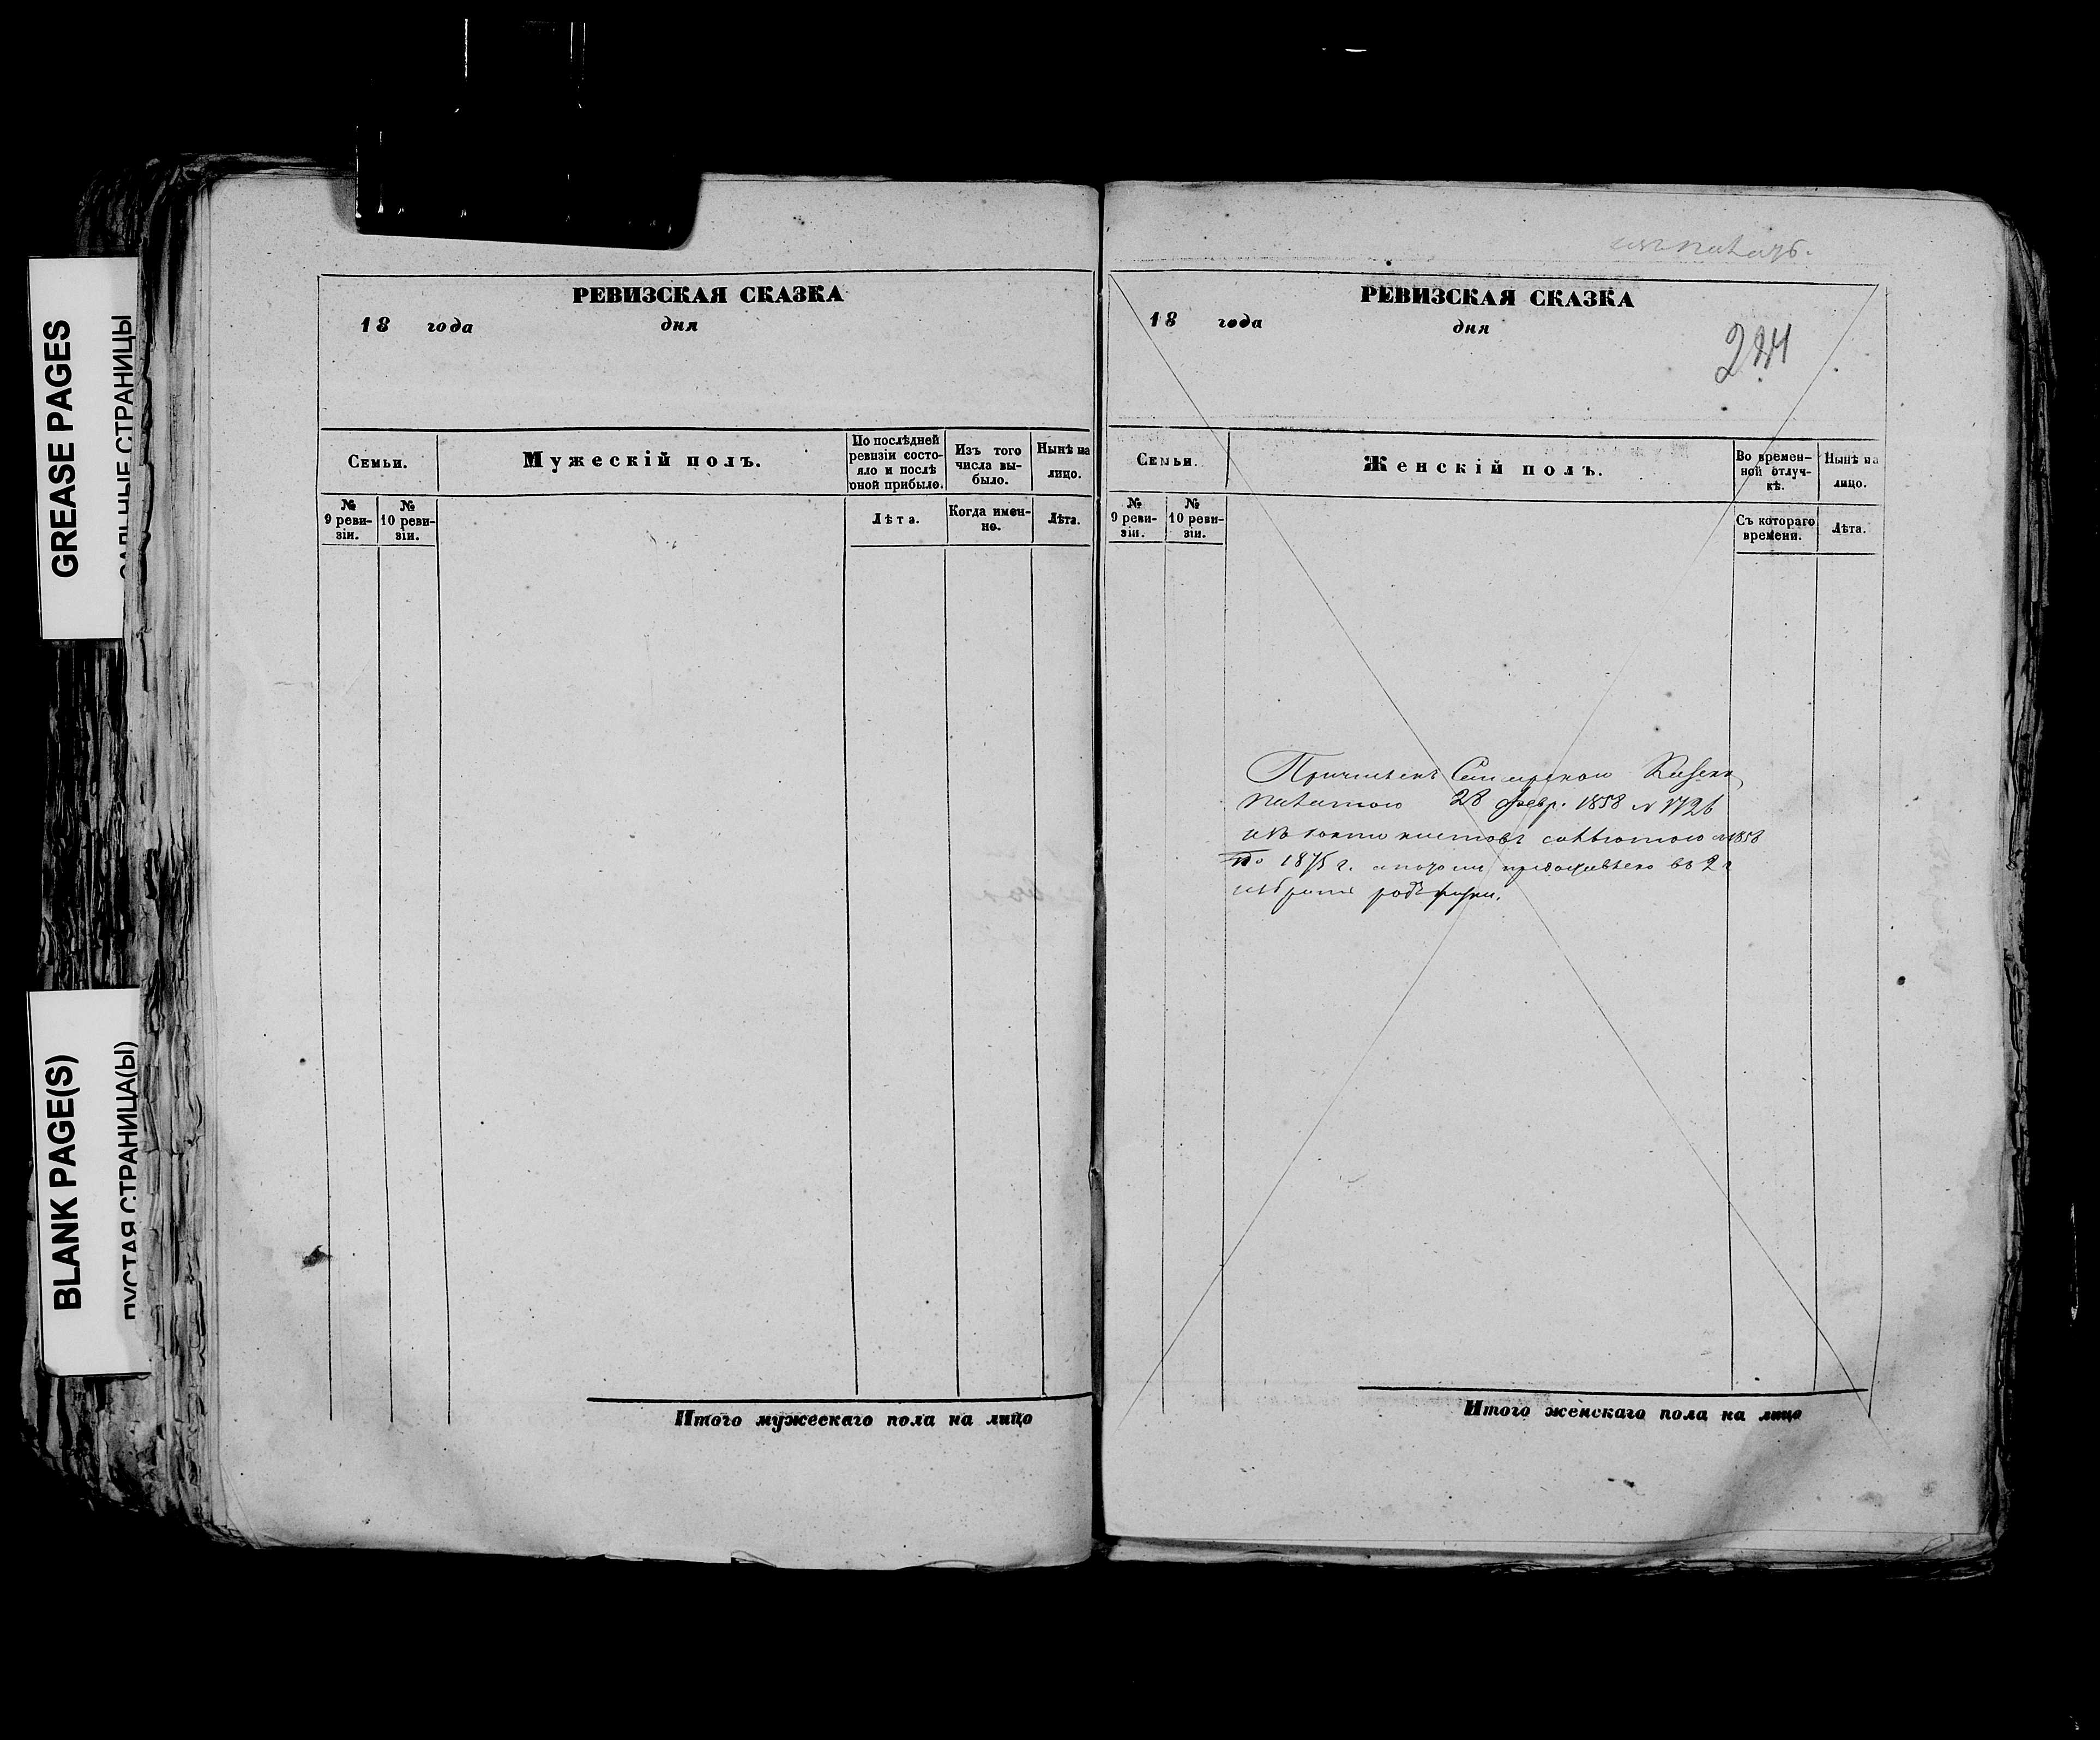 GREASE PAGES
BLANK PAGE(S)
ПУСТАЯ СТРАНИЦА(Ы)
РЕВИЗСКАЯ СКАЗКА
18 года дня
Семьи.
Мужескій полъ.
По послѣдней
ревизіи состо-
яло и послѣ
оной прибыло.
Изъ того
числа вы-
было.
Нынѣ на
лицо.
№
9 реви-
зіи.
№
10 реви-
зіи.
Лѣта.
Когда имен-
но.
Лѣта.
Итого мужескаго пола на лицо
РЕВИЗСКАЯ СКАЗКА
18 года дня
Семьи.
Женскій полъ.
Во времен-
ной отлуч-
кѣ.
Нынѣ на
лицо.
№
9 реви-
зіи.
№
10 реви-
зіи.
Съ котораго
времени.
Лѣта.
Причислен Самарскою Казен
палатою 28 февр. 1858 №
1858
по 1875 г. въ 2
Итого женскаго пола на лицо